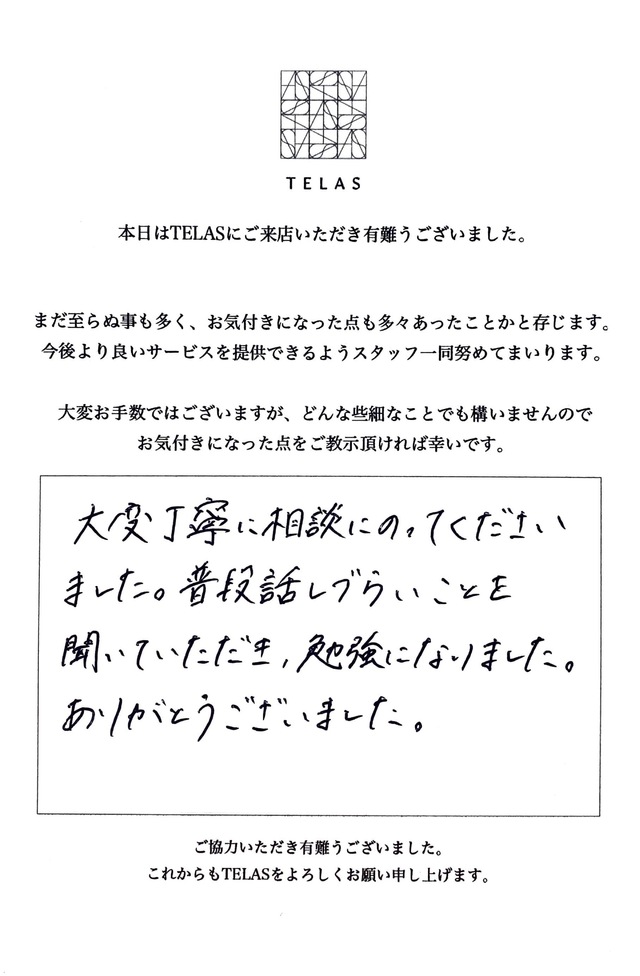 TELAS
本日はTELASにご来店いただき有難うございました。
まだ至らぬ事も多く、お気付きになった点も多々あったことかと存じます。
今後より良いサービスを提供できるようスタッフ一同努めてまいります。
大変お手数ではございますが、どんな些細なことでも構いませんので
お気付きになった点をご教示頂ければ幸いです。
大変丁寧に相談にのってください
ました。普段話しづらいことを
聞いていただき、勉強になりました。
ありがとうございました。
ご協力いただき有難うございました。
これからもTELASをよろしくお願い申し上げます。